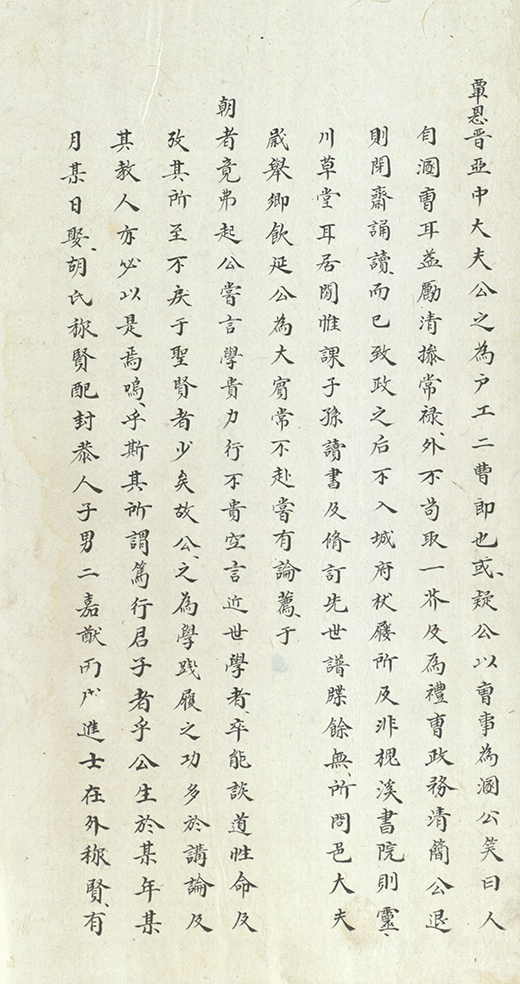 覃恩晋亚中大夫公之為户工二曹郎也或疑公以曹事為溷公笑曰人
自溷曹耳益勵清操常禄外不苟取一芥及為禮曹政務清簡公退
則閉齋誦讀而已致政之后不入城府杖屨所及非槐溪書院則靈
川草堂耳居閒惟課子孫讀書及脩訂先世譜牒餘無所問邑大夫
嵗舉鄉飲延公為大賓常不赴嘗有論薦于
朝者竟弗起公嘗言學貴力行不貴空言近世學者卒能談道性命及
攷其所至不戾于聖賢者少矣故公之為學踐履之功多於講論及
其教人亦必以是焉嗚乎斯其所謂篤行君子者乎公生於某年某
月某日娶胡氏称賢配封恭人子男二嘉猷丙戌進士在外称賢有